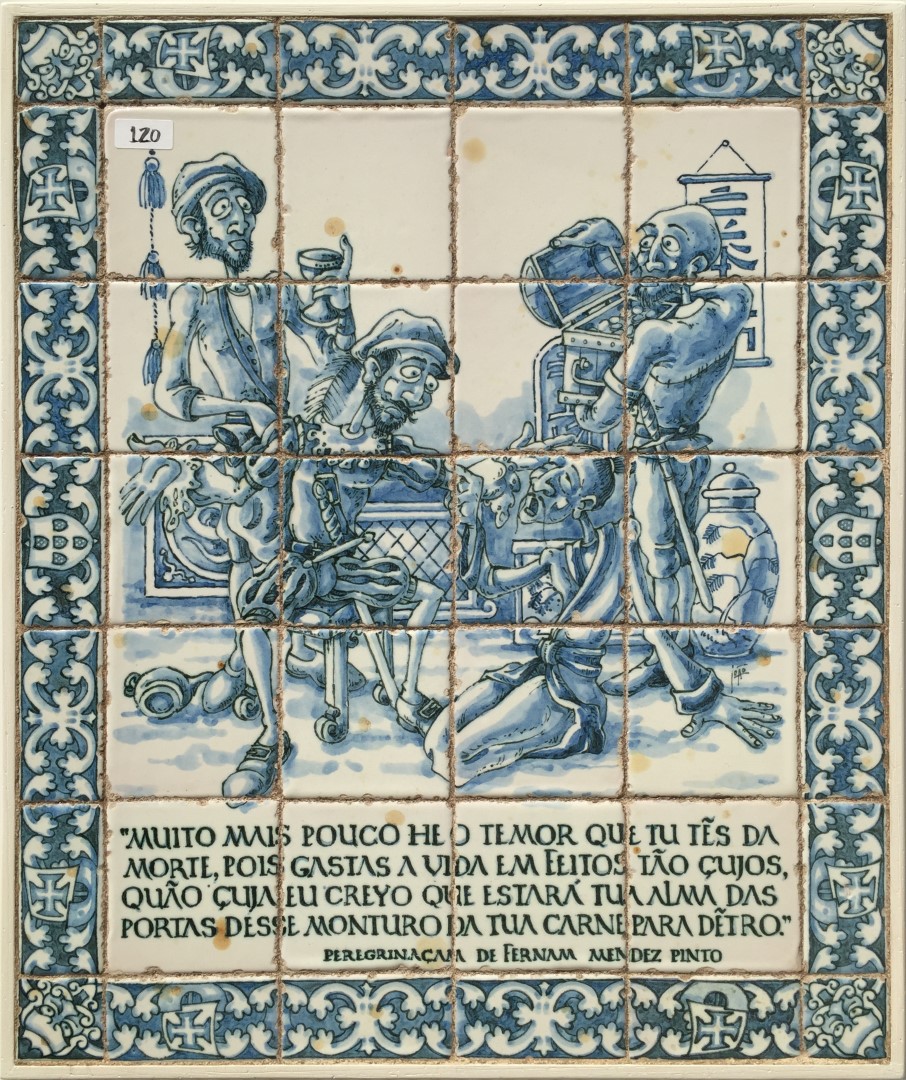 120
"MUITO MAIS POUCO HE O TEMOR QUE TU TẼS DA
MORTE, POIS GASTAS A VIDA EM FEITOS TÃO ÇUJOS,
QUÃO ÇUJA EU CREYO QUE ESTARÁ TUA ALMA DAS
PORTAS DESSE MONTURO DA TUA CARNE PARA DẼTRO."
PEREGRINAÇAM DE FERNAM MENDEZ PINTO